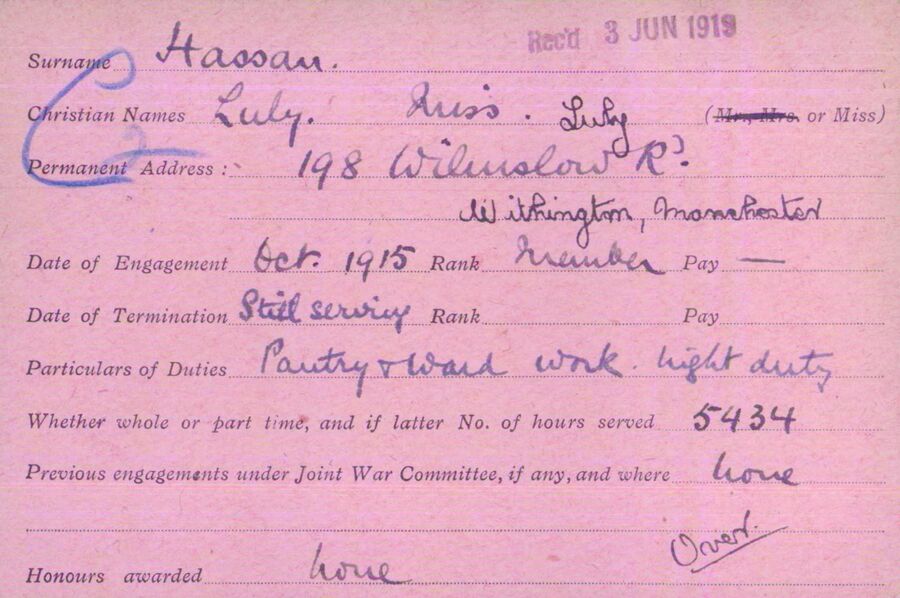 Rec'd 3 JUN 1919
Surname Hassan.
Christian Names Luly. Miss. Luly (Mr., Mrs. or Miss)
Permanent Address: 198 Wilmslow Rd.
Withington, Manchester
Date of Engagement Oct. 1915 Rank Member Pay —
Date of Termination Still serving Rank Pay
Particulars of Duties Pantry & Ward work. night duty
Whether whole or part time, and if latter No. of hours served 5434
Previous engagements under Joint War Committee, if any, and where none
Over.
Honours awarded none